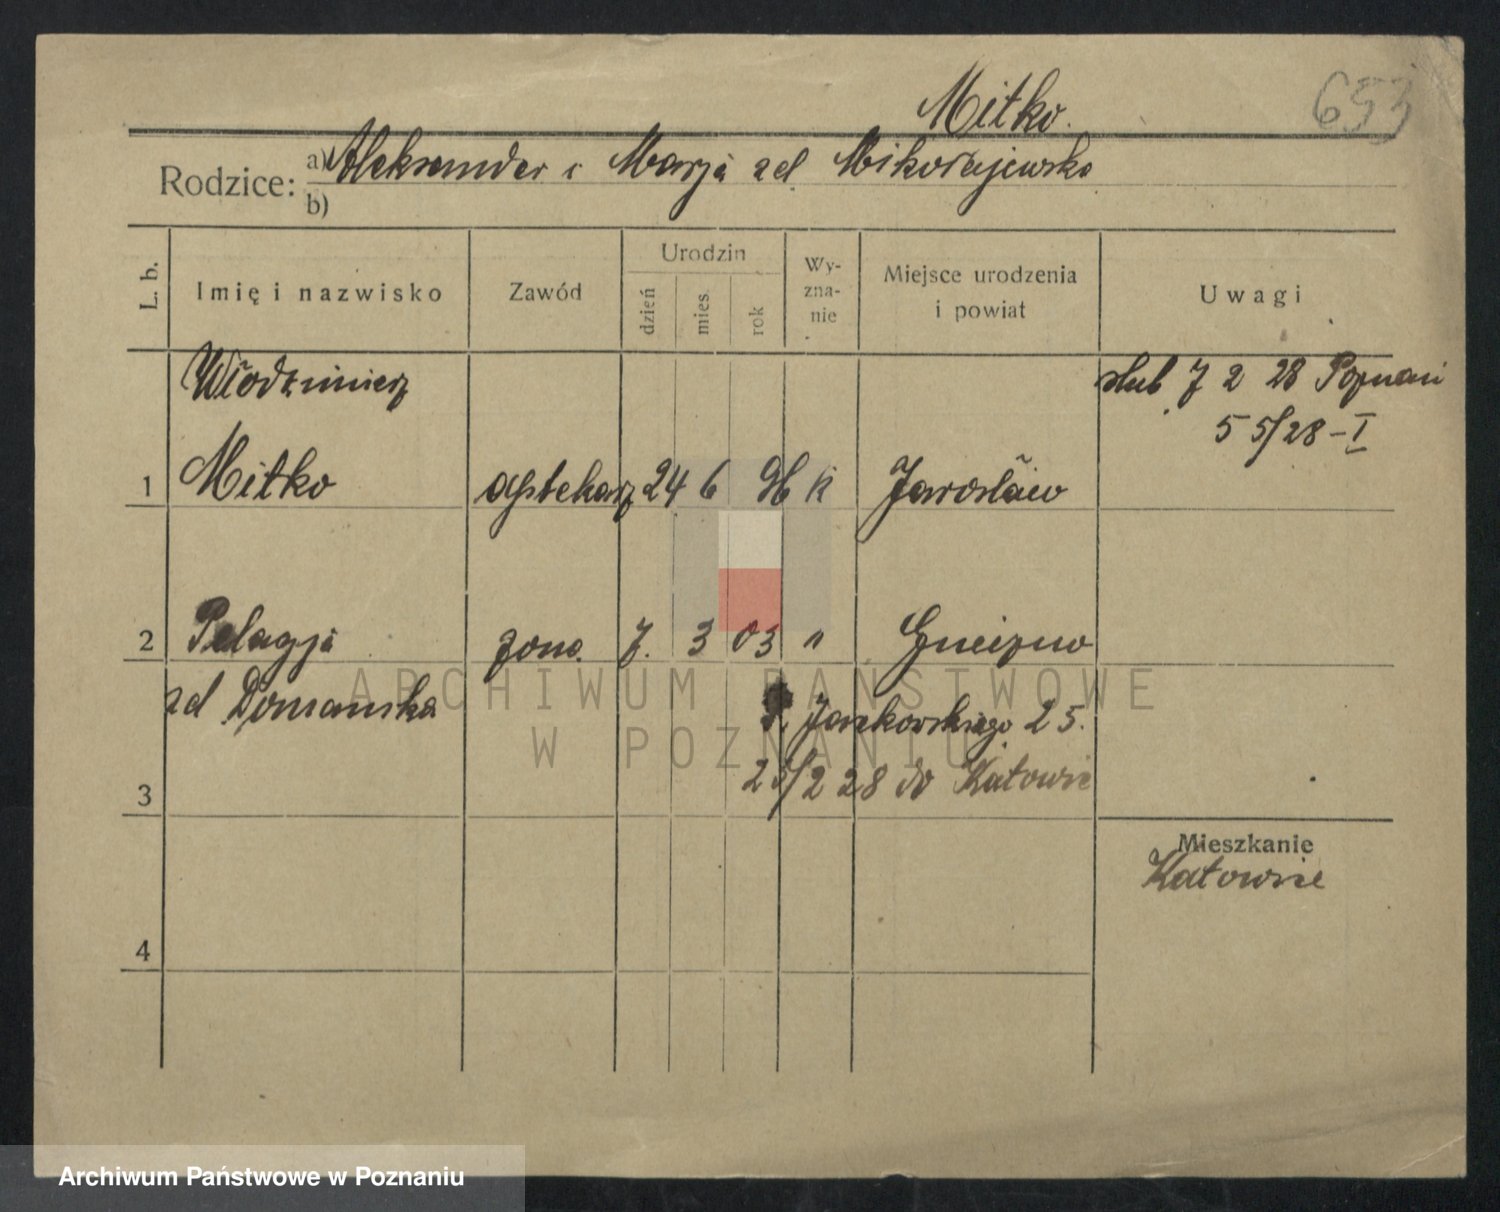 Mitko. 653
Rodzice: a) Aleksander i Marja zd Mikołajewska
b)
L. b. Imię i nazwisko Zawód Urodzin dzień mies. rok Wy-zna-nie Miejsce urodzenia i powiat Uwagi
Włodzimierz ślub 7 2 28 Poznań
55/28-I
1 Mitko aptekarz 24 6 k Jarosław
2 Pelagja żona. 7. 3 03 " Gniezno
zd Domańska
Jackowskiego 25.
2 28 do Katowic
3
Mieszkanie
Katowice
4
ARCHIWUM PAŃSTWOWE
W POZNANIU
Archiwum Państwowe w Poznaniu